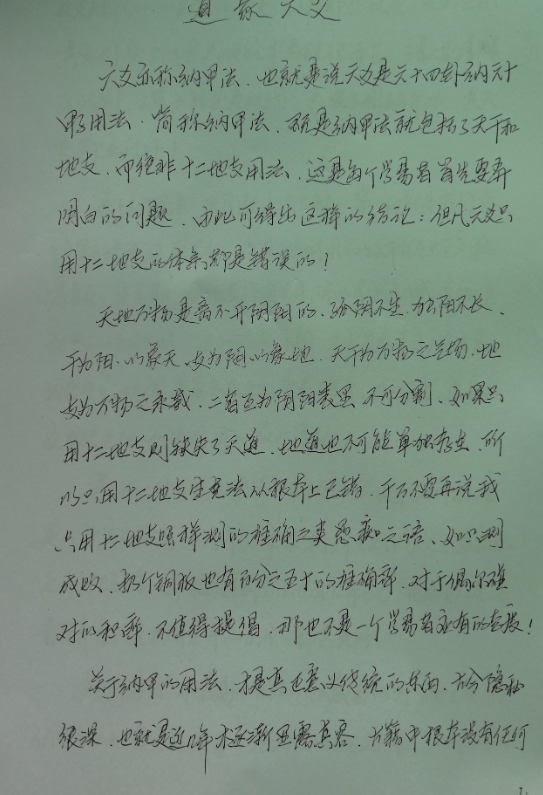 道家六爻
六爻亦称纳甲法，也就是说六爻是六十四卦纳天干
用法，简称纳甲法，既是纳甲法就包括了天干和
地支，而绝非十二地支用法，这是每个学易者首先要弄
明白的问题，由此可得出这样的结论：但凡六爻只
用十二地支的体系都是错误的！
天地万物是离不开阴阳的，孤阴不生，独阳不长，
干为阳，以象天，支为阴以象地，天干为万物之气场，地
支为万物之承载，二者互为阴阳表里，不可分割，如果只
用十二地支则缺失了天道，地道也不可能单独存在，所
以只用十二地支定克法从根本上已错，千万不要再说我
只用十二地支照样测的准确之类愚痴之语，如只测
成败，扔个铜板也有百分之五十的准确率，对于偶尔碰
对的积率，不值得提倡，那也不是一个学易者应有的态度！
关于纳甲的用法，才是真正意义传统的东西，十分隐秘
很深，也就是近几年才逐渐显露真容，古籍中根本没有任何